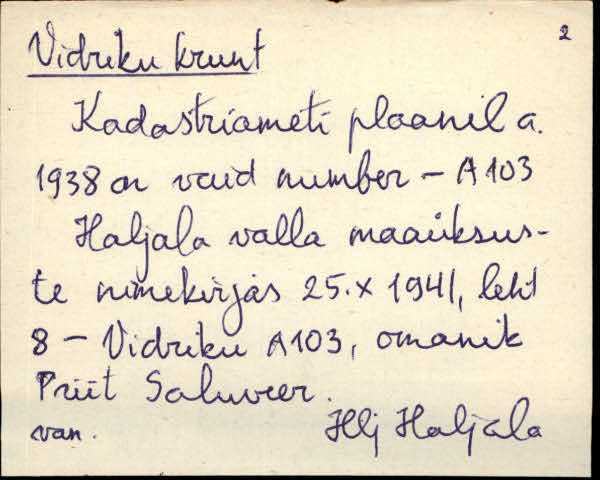 2
Vidriku krunt
Kadastriameti plaanil a.
1938 on vaid number - A103
Haljala valla maaüksus-
te nimekirjas 25.X 1941, leht
8 - Vidriku A103, omanik
Priit Saluveer.
van. Hlj Haljala